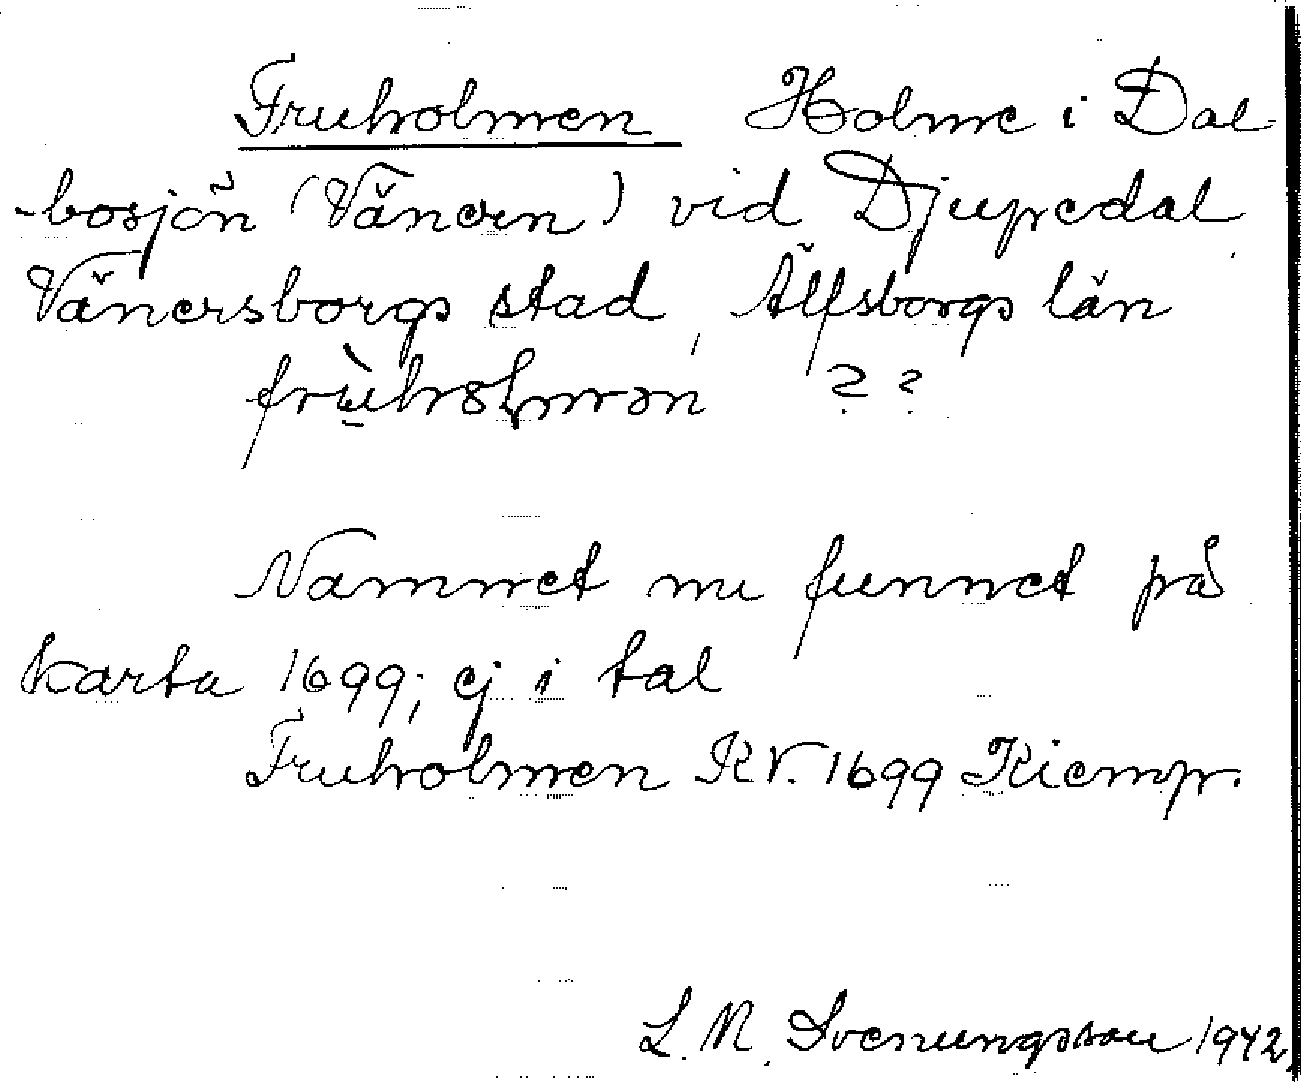 Fruholmen Holme i Dal-
-bosjön (Vänern) vid Djupedal
Vänersborgs stad, Älfsborgs län
??
Namnet nu funnet på
karta 1699; ej i tal
Fruholmen KV. 1699 Kiemp.
L. N. Svenungsson 1942